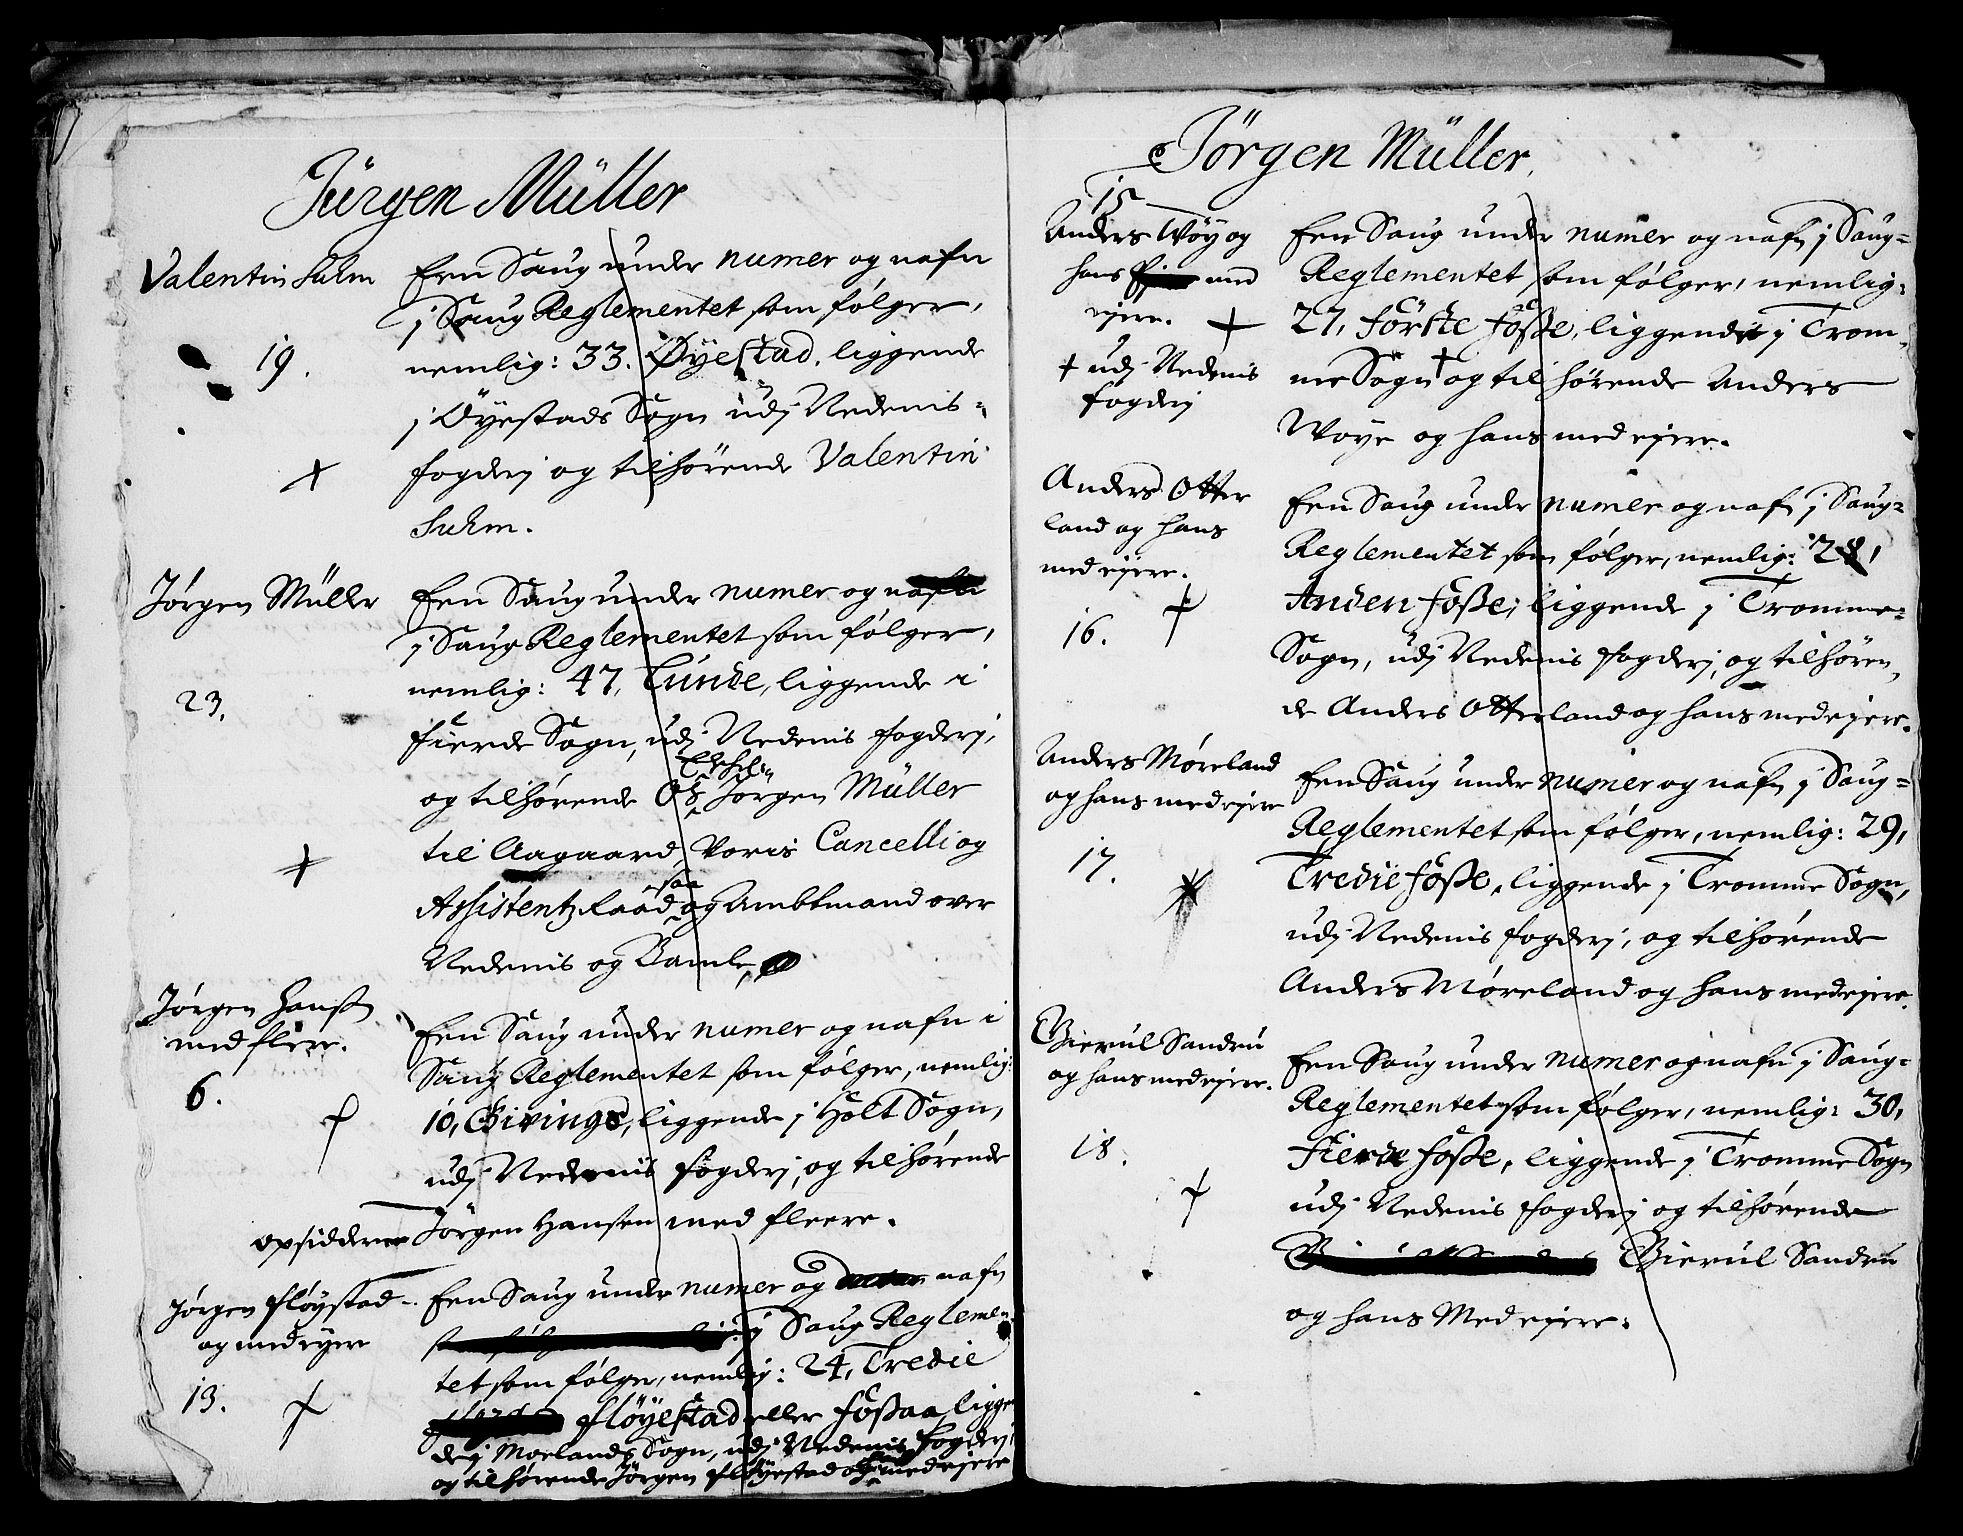 Jürgen Müller
Valentin Suhm
19.
Een Saug under numer og nafn
j Saug Reglementet som følger,
nemlig: 33. Øyestad, liggende
j Øyestads Sogn udj Nedenis-
fogderj og tilhørende Valentin
Suhm.
Jørgen Müller
23.
Een Saug under numer og nafn
j Saug Reglementet som følger,
nemlig: 47, Lunde, liggende i
fierde Sogn, udj Nedenis fogderj,
og tilhørende Os Jørgen Müller
til Aagaard, Voris Cancelli og
Assistentz Raad saa og Ambtmand over
Nedenis og Bamle,
Jørgen Hansen
med fleere.
6.
Een Saug under numer og nafn i
Saug Reglementet som følger, nemlig:
10, Givings, liggende j Holt Sogn,
udj Nedenis fogderj, og tilhørende
opsidderne Jørgen Hansen med fleere.
Jørgen fløystad
og medejere
13.
Een Saug under numer og nafn
j Saug Reglemen
tet som følger, nemlig: 24, Tredie
fløyestad eller fossaa ligge
de j Morlands Sogn, udj Nedenis fogderj
og tilhørende Jørgen fløyestad og medejere
Jørgen Müller.
15
Anders Woy og
hans med
ejere.
+ udj Nedenis
fogderj
Een Saug under numer og nafn j Saug=
Reglementet som følger, nemlig:
27, förste fosse, liggende j Trom
me Sogn + og tilhørende Anders
Woye og hans medejere.
Anders Otter
land og hans
medejere.
16.
Een Saug under numer og nafn j Saug=
Reglementet som følger, nemlig: 28,
Anden fosse, liggende j Tromme=
Sogn, udj Nedenis fogderj, og tilhøren
de Anders Otterland og hans medejere.
Anders Møreland
og hans medejere
17.
Een Saug under numer og nafn j Saug=
Reglementet som følger, nemlig: 29,
Tredie fosse, liggende j Tromme Sogn,
udj Nedenis fogderj, og tilhørende
Anders Møreland og hans medejere.
Gierul Sandru
og hans medejere.
18.
Een Saug under numer og nafn j Saug=
Reglementet som følger, nemlig: 30,
Fierde fosse, liggende j Tromme Sogn
udj Nedenis fogderj og tilhørende
Gierul Sandru
og hans Medejere.